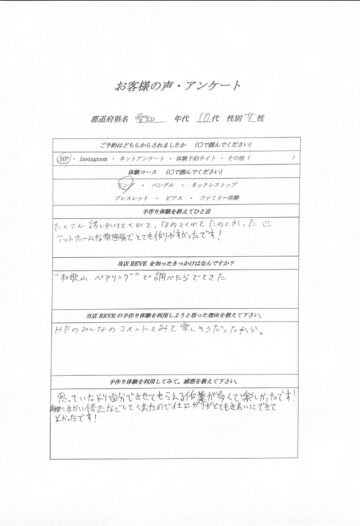 お客様の声・アンケート
都道府県名 愛知 年代 10代 性別 女性
ご予約はどちらからされましたか （〇で囲んでください）
HP・Instagram・ネットアンケート・体験予約サイト・その他（ ）
体験コース （〇で囲んでください）
リング ・ バングル ・ ネックレストップ
ブレスレット ・ ピアス ・ ファミリー体験
手作り体験を終えてひと言
たくさん話しかけてくれて、ほめてくれてたのしかった
アットホームな雰囲気でとても創りやすかったです！
当店 REVE を知ったきっかけはなんですか？
"和歌山 ペアリング"で調べたらでてきた
当店 REVE の手作り体験を利用しようと思った理由を教えて下さい。
HPのみんなのコメントをみて楽しそうだったから。
手作り体験を利用してみて。感想を教えて下さい。
思っていたより自分でさせてもらえる作業が多くて楽しかったです！
細かい修正などしてくれたので仕上がりがとてもきれいにできて
よかったです！